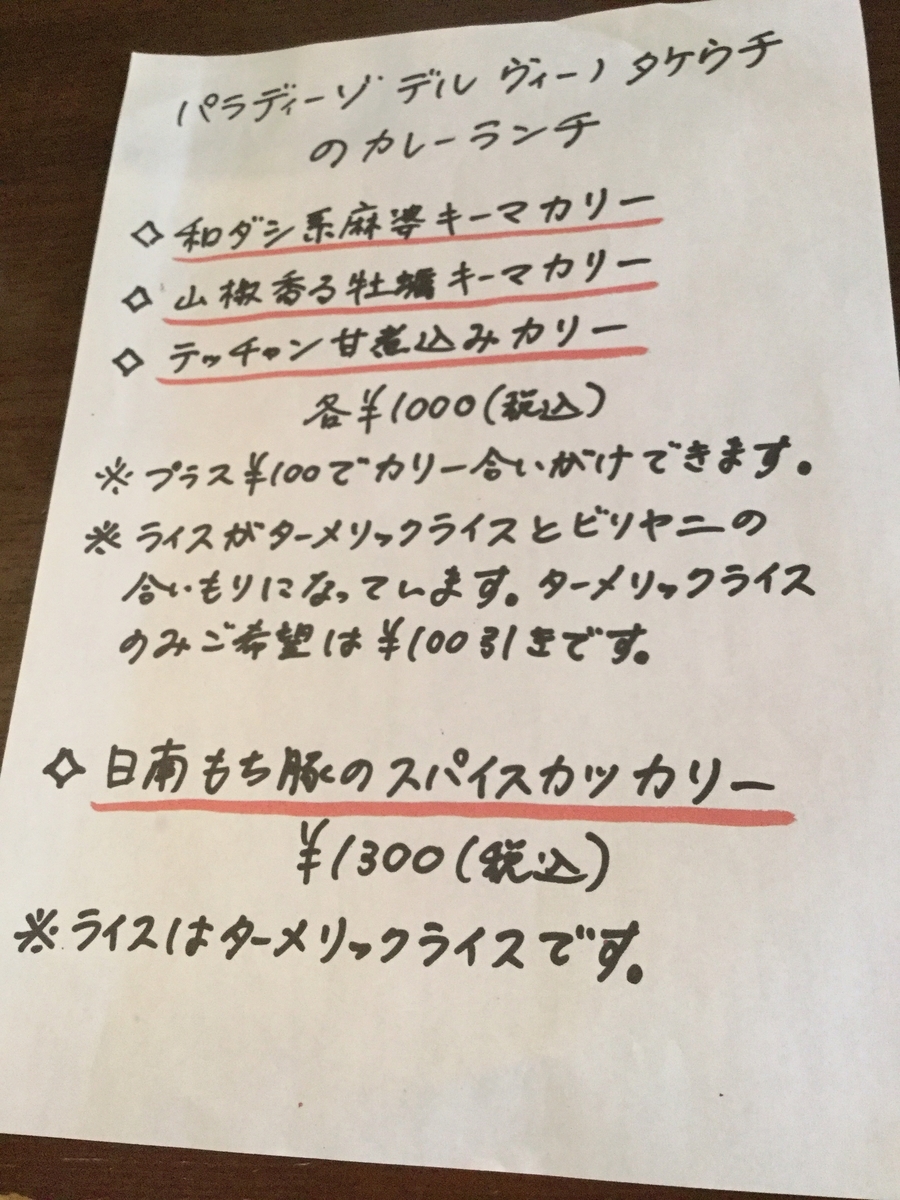 パラディーゾ デル ヴィーノ タケウチ
のカレーランチ
◇ 和ダシ系麻婆キーマカリー
◇ 山椒香る牡蠣キーマカリー
◇ テッチャン甘煮込みカリー
各¥1000(税込)
※ プラス¥100でカリー合いがけできます。
※ ライスがターメリックライスとビリヤニの
合いもりになっています。ターメリックライス
のみご希望は¥100引きです。
◇ 日南もち豚のスパイスカツカリー
¥1300(税込)
※ ライスはターメリックライスです。